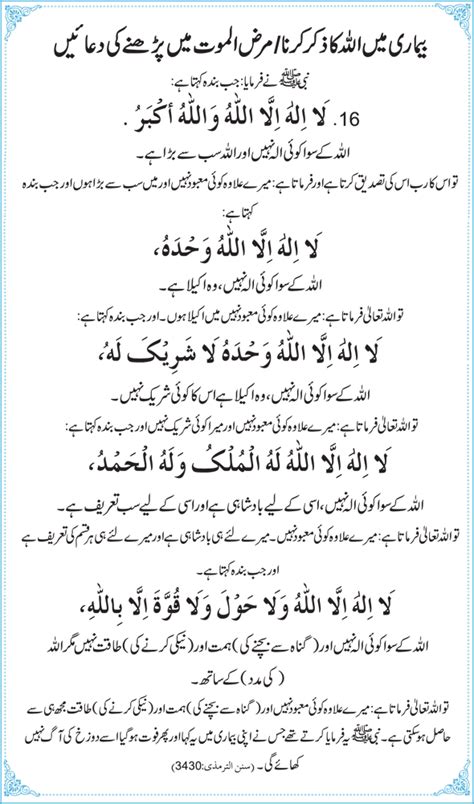 بیماری میں اللہ کا ذکر کرنا/مرض الموت میں پڑھنے کی دعائیں
نبی ﷺ نے فرمایا: جب بندہ کہتا ہے:
16. لَا اِلٰهَ اِلَّا اللّٰهُ وَاللّٰهُ أَكْبَرُ .
اللہ کے سوا کوئی الہ نہیں اور اللہ سب سے بڑا ہے۔
تو اس کا رب اس کی تصدیق کرتا ہے اور فرماتا ہے: میرے علاوہ کوئی معبود نہیں اور میں سب سے بڑا ہوں اور جب بندہ
کہتا ہے:
لَا اِلٰهَ اِلَّا اللّٰهُ وَحْدَهُ،
اللہ کے سوا کوئی الہ نہیں، وہ اکیلا ہے۔
تو اللہ تعالیٰ فرماتا ہے: میرے علاوہ کوئی معبود نہیں میں اکیلا ہوں۔ اور جب بندہ کہتا ہے:
لَا اِلٰهَ اِلَّا اللّٰهُ وَحْدَهُ لَا شَرِيْكَ لَهُ،
اللہ کے سوا کوئی الہ نہیں، وہ اکیلا ہے اس کا کوئی شریک نہیں۔
تو اللہ تعالیٰ فرماتا ہے: میرے علاوہ کوئی معبود نہیں اور میرا کوئی شریک نہیں اور جب بندہ کہتا ہے:
لَا اِلٰهَ اِلَّا اللّٰهُ لَهُ الْمُلْكُ وَلَهُ الْحَمْدُ،
اللہ کے سوا کوئی الہ نہیں، اسی کے لیے بادشاہی ہے اور اسی کے لیے سب تعریف ہے۔
تو اللہ تعالیٰ فرماتا ہے: میرے علاوہ کوئی معبود نہیں۔ میرے لئے ہی بادشاہی ہے اور میرے لئے ہی ہر قسم کی تعریف ہے
اور جب بندہ کہتا ہے۔
لَا اِلٰهَ اِلَّا اللّٰهُ وَلَا حَوْلَ وَلَا قُوَّةَ اِلَّا بِاللّٰهِ،
اللہ کے سوا کوئی الہ نہیں اور (گناہ سے بچنے کی) ہمت اور (نیکی کرنے کی) طاقت نہیں مگر اللہ
(کی مدد) کے ساتھ۔
تو اللہ تعالیٰ فرماتا ہے: میرے علاوہ کوئی معبود نہیں اور (گناہ سے بچنے کی) ہمت اور (نیکی کرنے کی) طاقت مجھ ہی سے
حاصل ہو سکتی ہے۔ نبی ﷺ یہ فرمایا کرتے تھے جس نے اپنی بیماری میں یہ کہا اور پھر فوت ہو گیا اسے دوزخ کی آگ نہیں
کھائے گی۔ (سنن الترمذی: 3430)